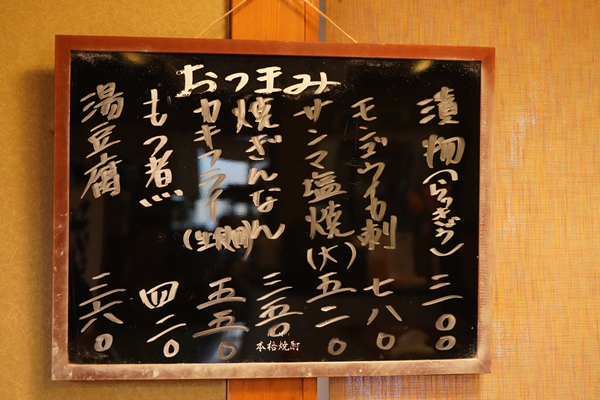 おつまみ
漬物(らっきょう) 三〇〇
モンゴウイカ刺 七八〇
サンマ塩焼(大) 五二〇
焼ぎんなん 三五〇
カキフライ(生食用) 五五〇
もつ煮 四二〇
湯豆腐 三六〇
本格焼酎